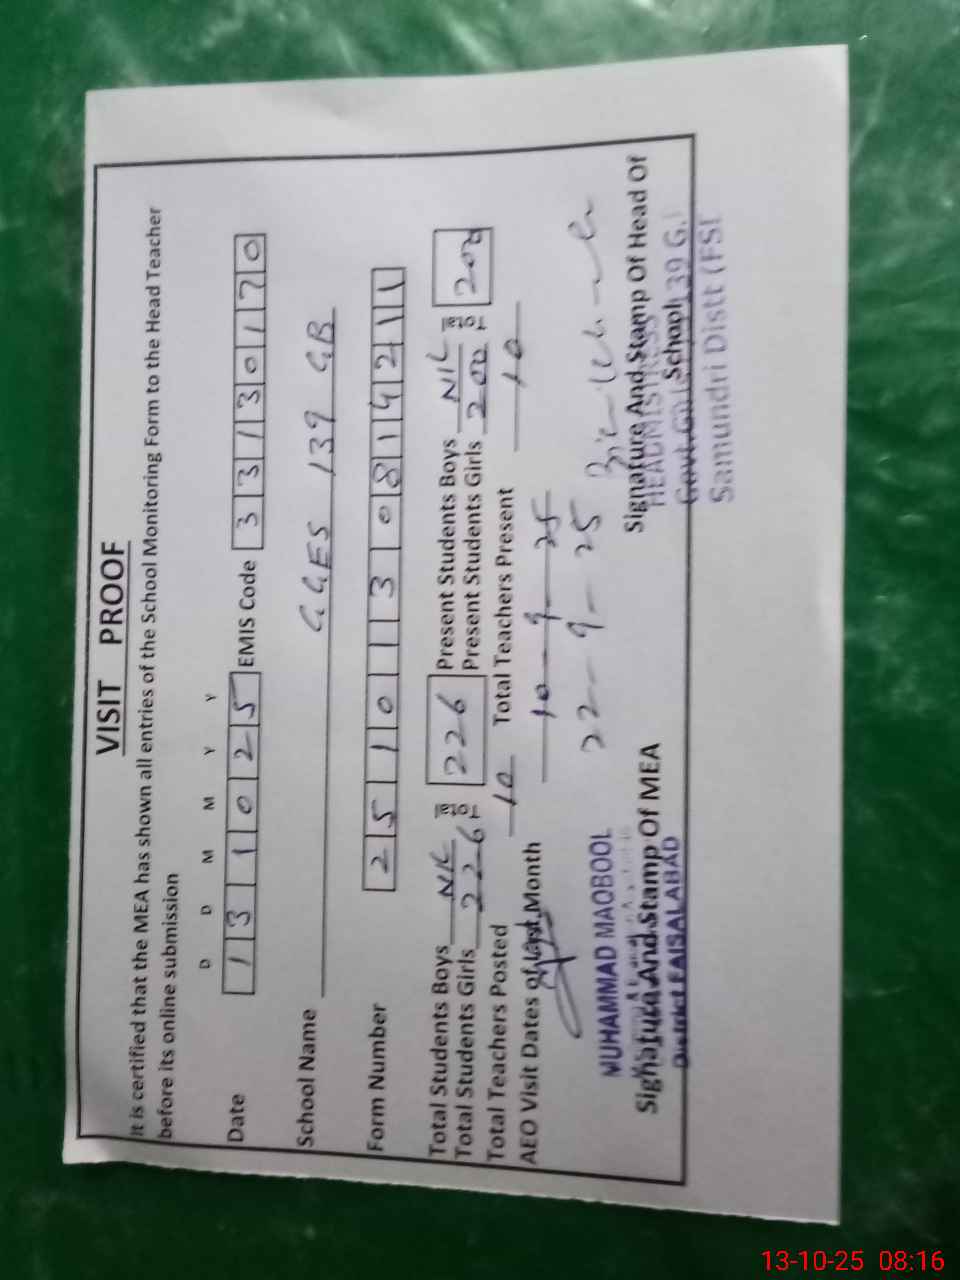 VISIT PROOF
It is certified that the MEA has shown all entries of the School Monitoring Form to the Head Teacher
before its online submission
D D M M Y Y
Date 1 3 1 0 2 5 EMIS Code 3 3 1 3 0 1 7 0
School Name GGES 139 GB
Form Number 2 5 1 0 1 3 0 8 1 4 2 1 1
Total Students Boys NIL Total 226 Present Students Boys NIL Total 200
Total Students Girls 226 Present Students Girls 200
Total Teachers Posted 10 Total Teachers Present 10
AEO Visit Dates of Last Month 10-9-25
22-9-25
MUHAMMAD MAQBOOL
Signature And Stamp Of MEA
District FAISALABAD
Signature And Stamp Of Head Of
School
HEADMISTRESS
Govt. 139 G.
Samundri Distt (FSD
13-10-25 08:16